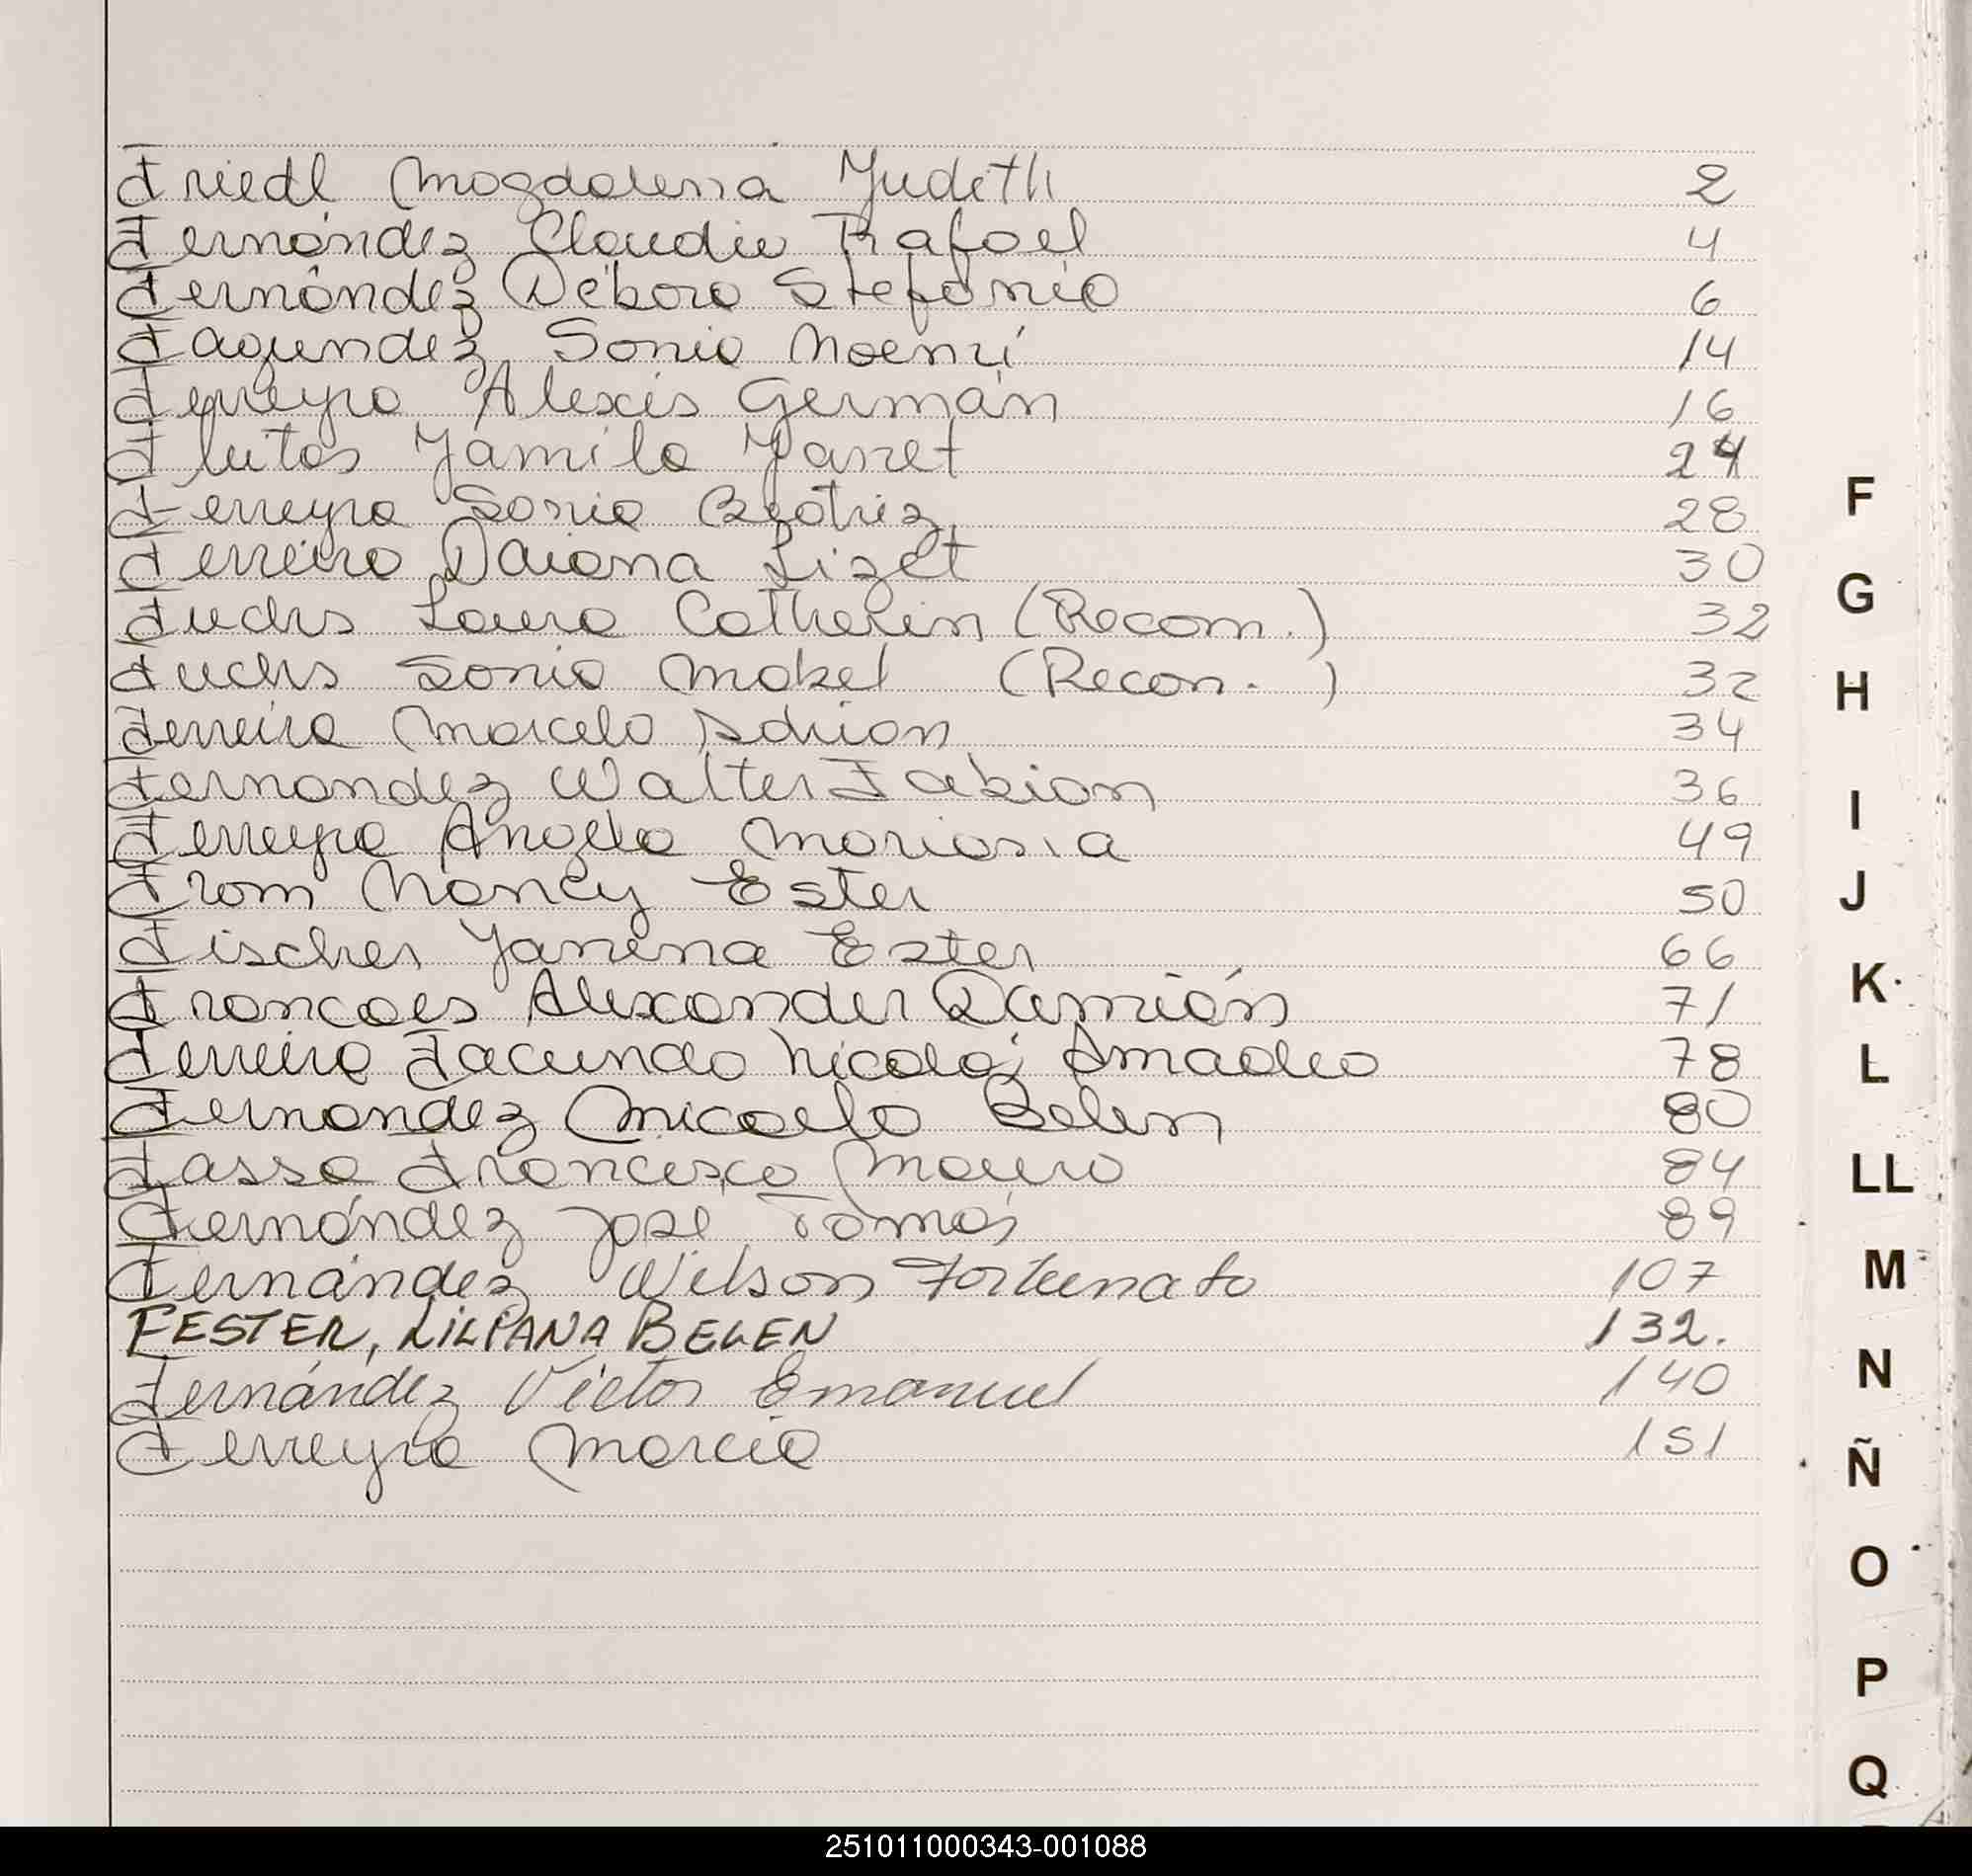 Friedl Magdalena Judith 2
Fernández Claudio Rafael 4
Fernández Débora Stefania 6
Fagundez Sonia Noemí 14
Ferreyra Alexis Germán 16
Fleitas Yamila Yanet 24
Ferreyra Sonia Beatriz 28
Ferreiro Daiana Lizet 30
Fuchs Laura Catherin (Recom.) 32
Fuchs Sonia Mabel (Recon.) 32
Ferreira Marcelo Adrian 34
Fernandez Walter Fabian 36
Ferreyra Angela Mariana 49
From Nancy Ester 50
Fischer Yanina Ester 66
Francoes Alexander Damián 71
Ferreira Facundo Nicolás Amadeo 78
Fernandez Micaela Belen 80
Fasso Francisco Mauro 84
Fernández José Tomás 89
Fernández Wilson Fortunato 107
FESTER, LILIANA BELEN 132.
Fernández Victor Emanuel 140
Ferreyra Marcia 151
F
G
H
I
J
K
L
LL
M
N
Ñ
O
P
Q
251011000343-001088